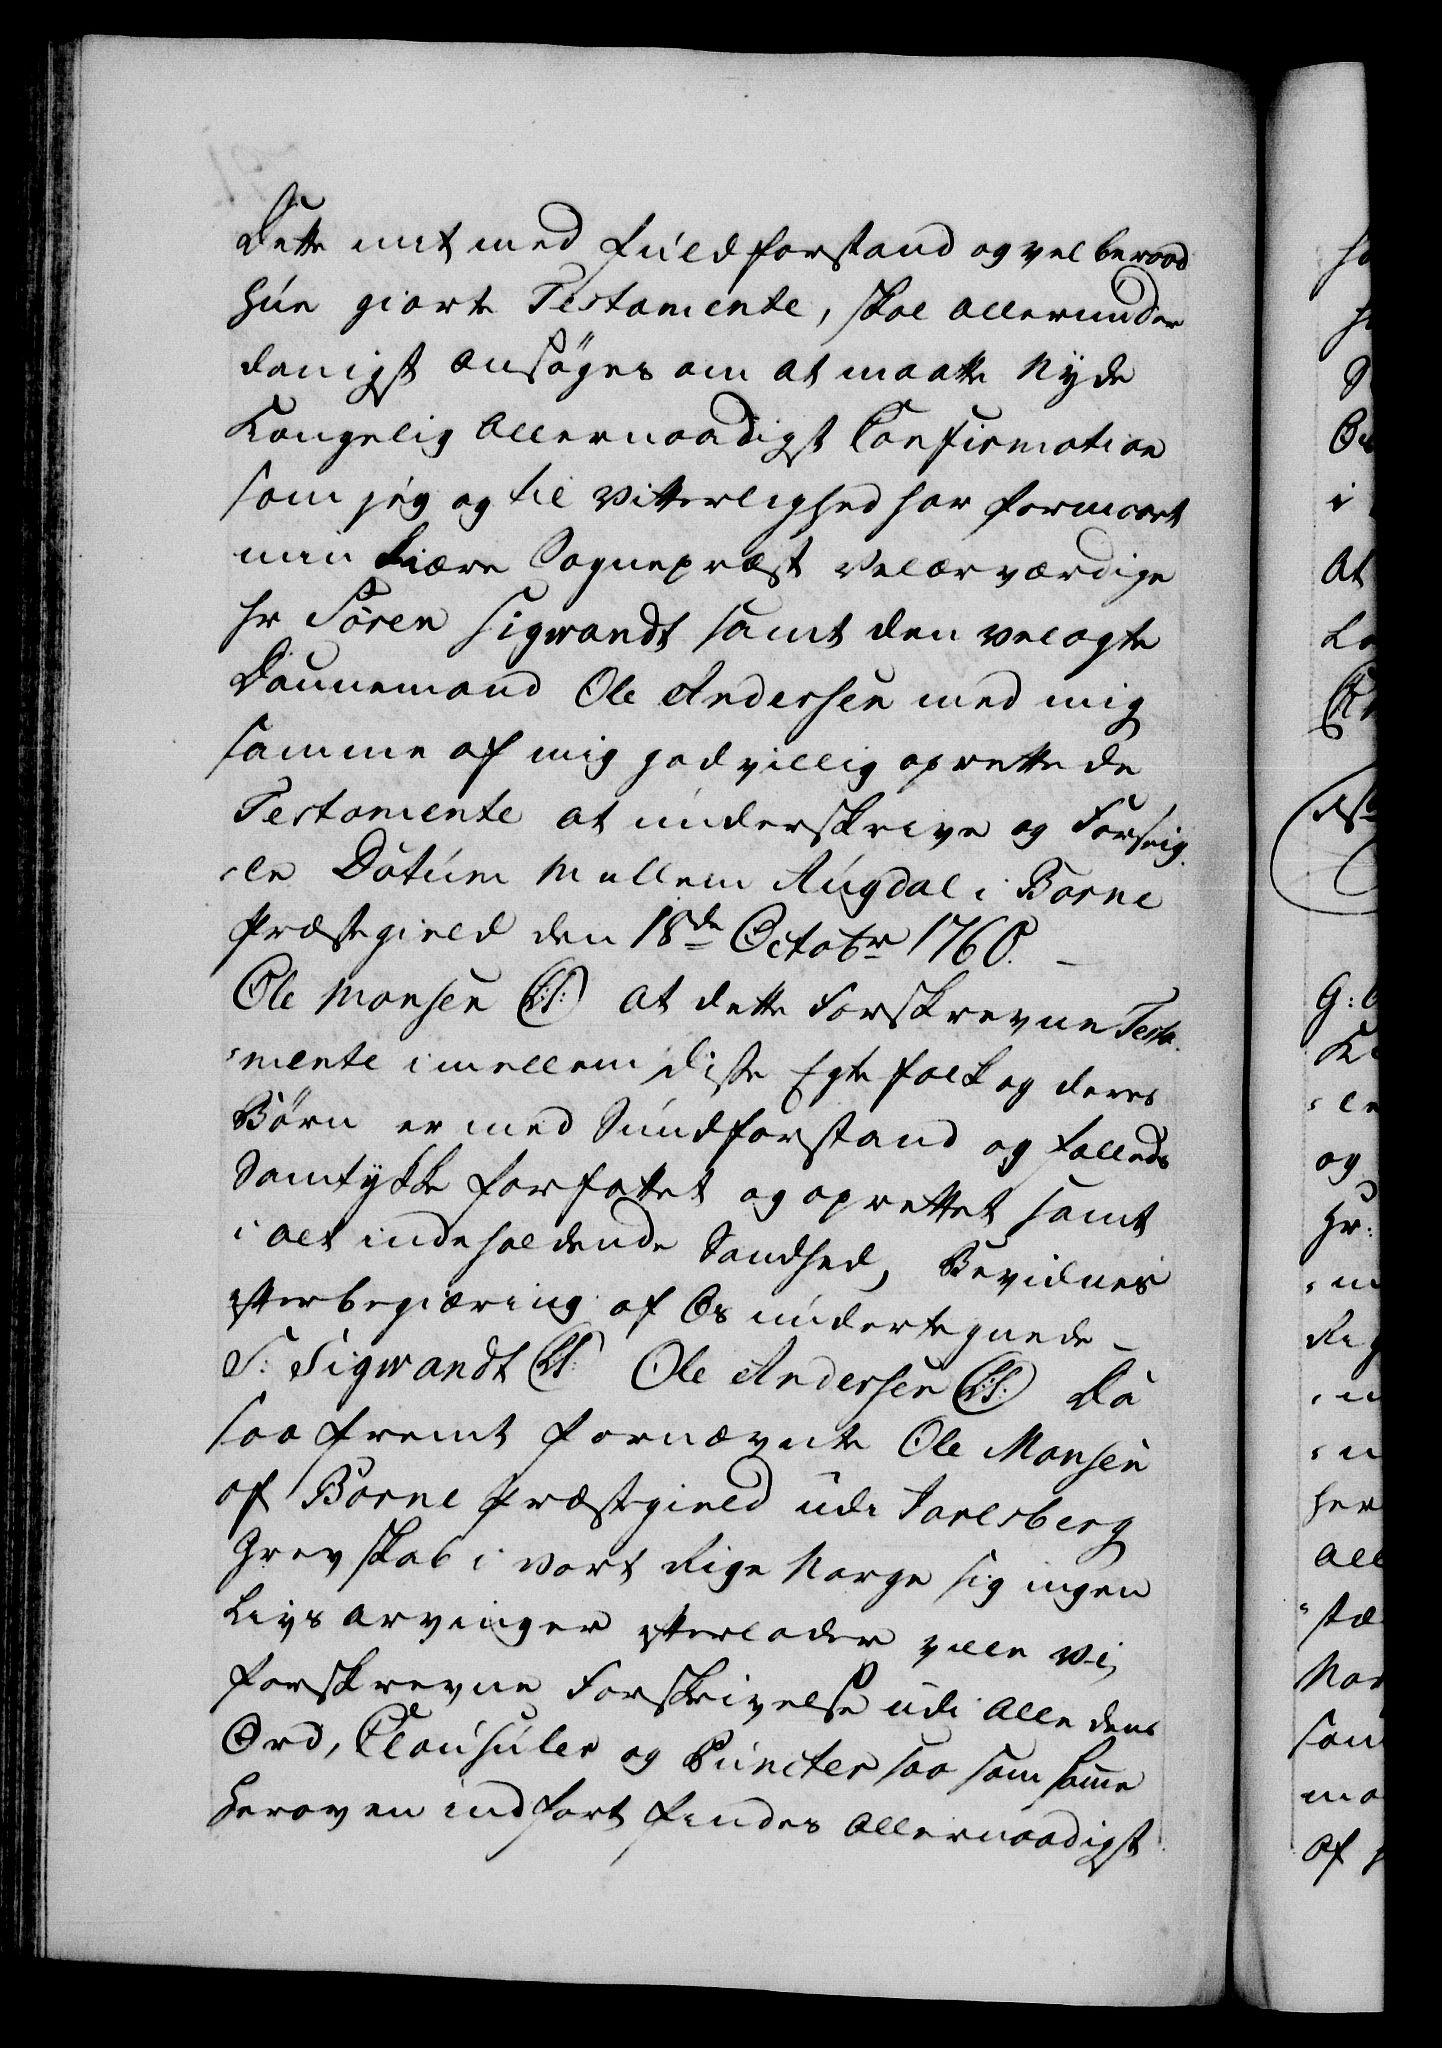 Dette mit med fuld forstand og vel beraad
hue giorte Testamente, skal allerunder
danigst ansøges om at maatte nyde
Kongelig allernaadigst Confirmation
som jeg og til vitterlighed har formaaet
min kiære Sognepræst velærværdige
Hr Søren Sigwandt samt den velagte
Dannemand Ole Andersen med mig
samme af mig godvillig oprettede
Testamente at underskrive og forseig
-le Datum Mellem Augdal i Borne
Præstegield den 18de Octobr 1760. –
Ole Monsen (L:S:) at dette forskrevne Testa
-mente imellem disse Egtefolk og deres
Børn er med Sund forstand og fælleds
Samtykke forfattet og oprettet samt
i alt indeholdende Sandhed, Bevidnes
efter begiæring af Os undertegnede –
S: Sigwandt (L:S:) Ole Andersen (L:S:) Da
saafremt fornævnte Ole Monsen
af Borne Præstegield udi Jarlsberg
Grevskab i vort Rige Norge sig ingen
Livs arvinger efterlader ville vi,
forskrevne Forskrivelse udi alle dens
Ord, Clausuler og Puncter saa som samme
heroven indført findes allernaadigst